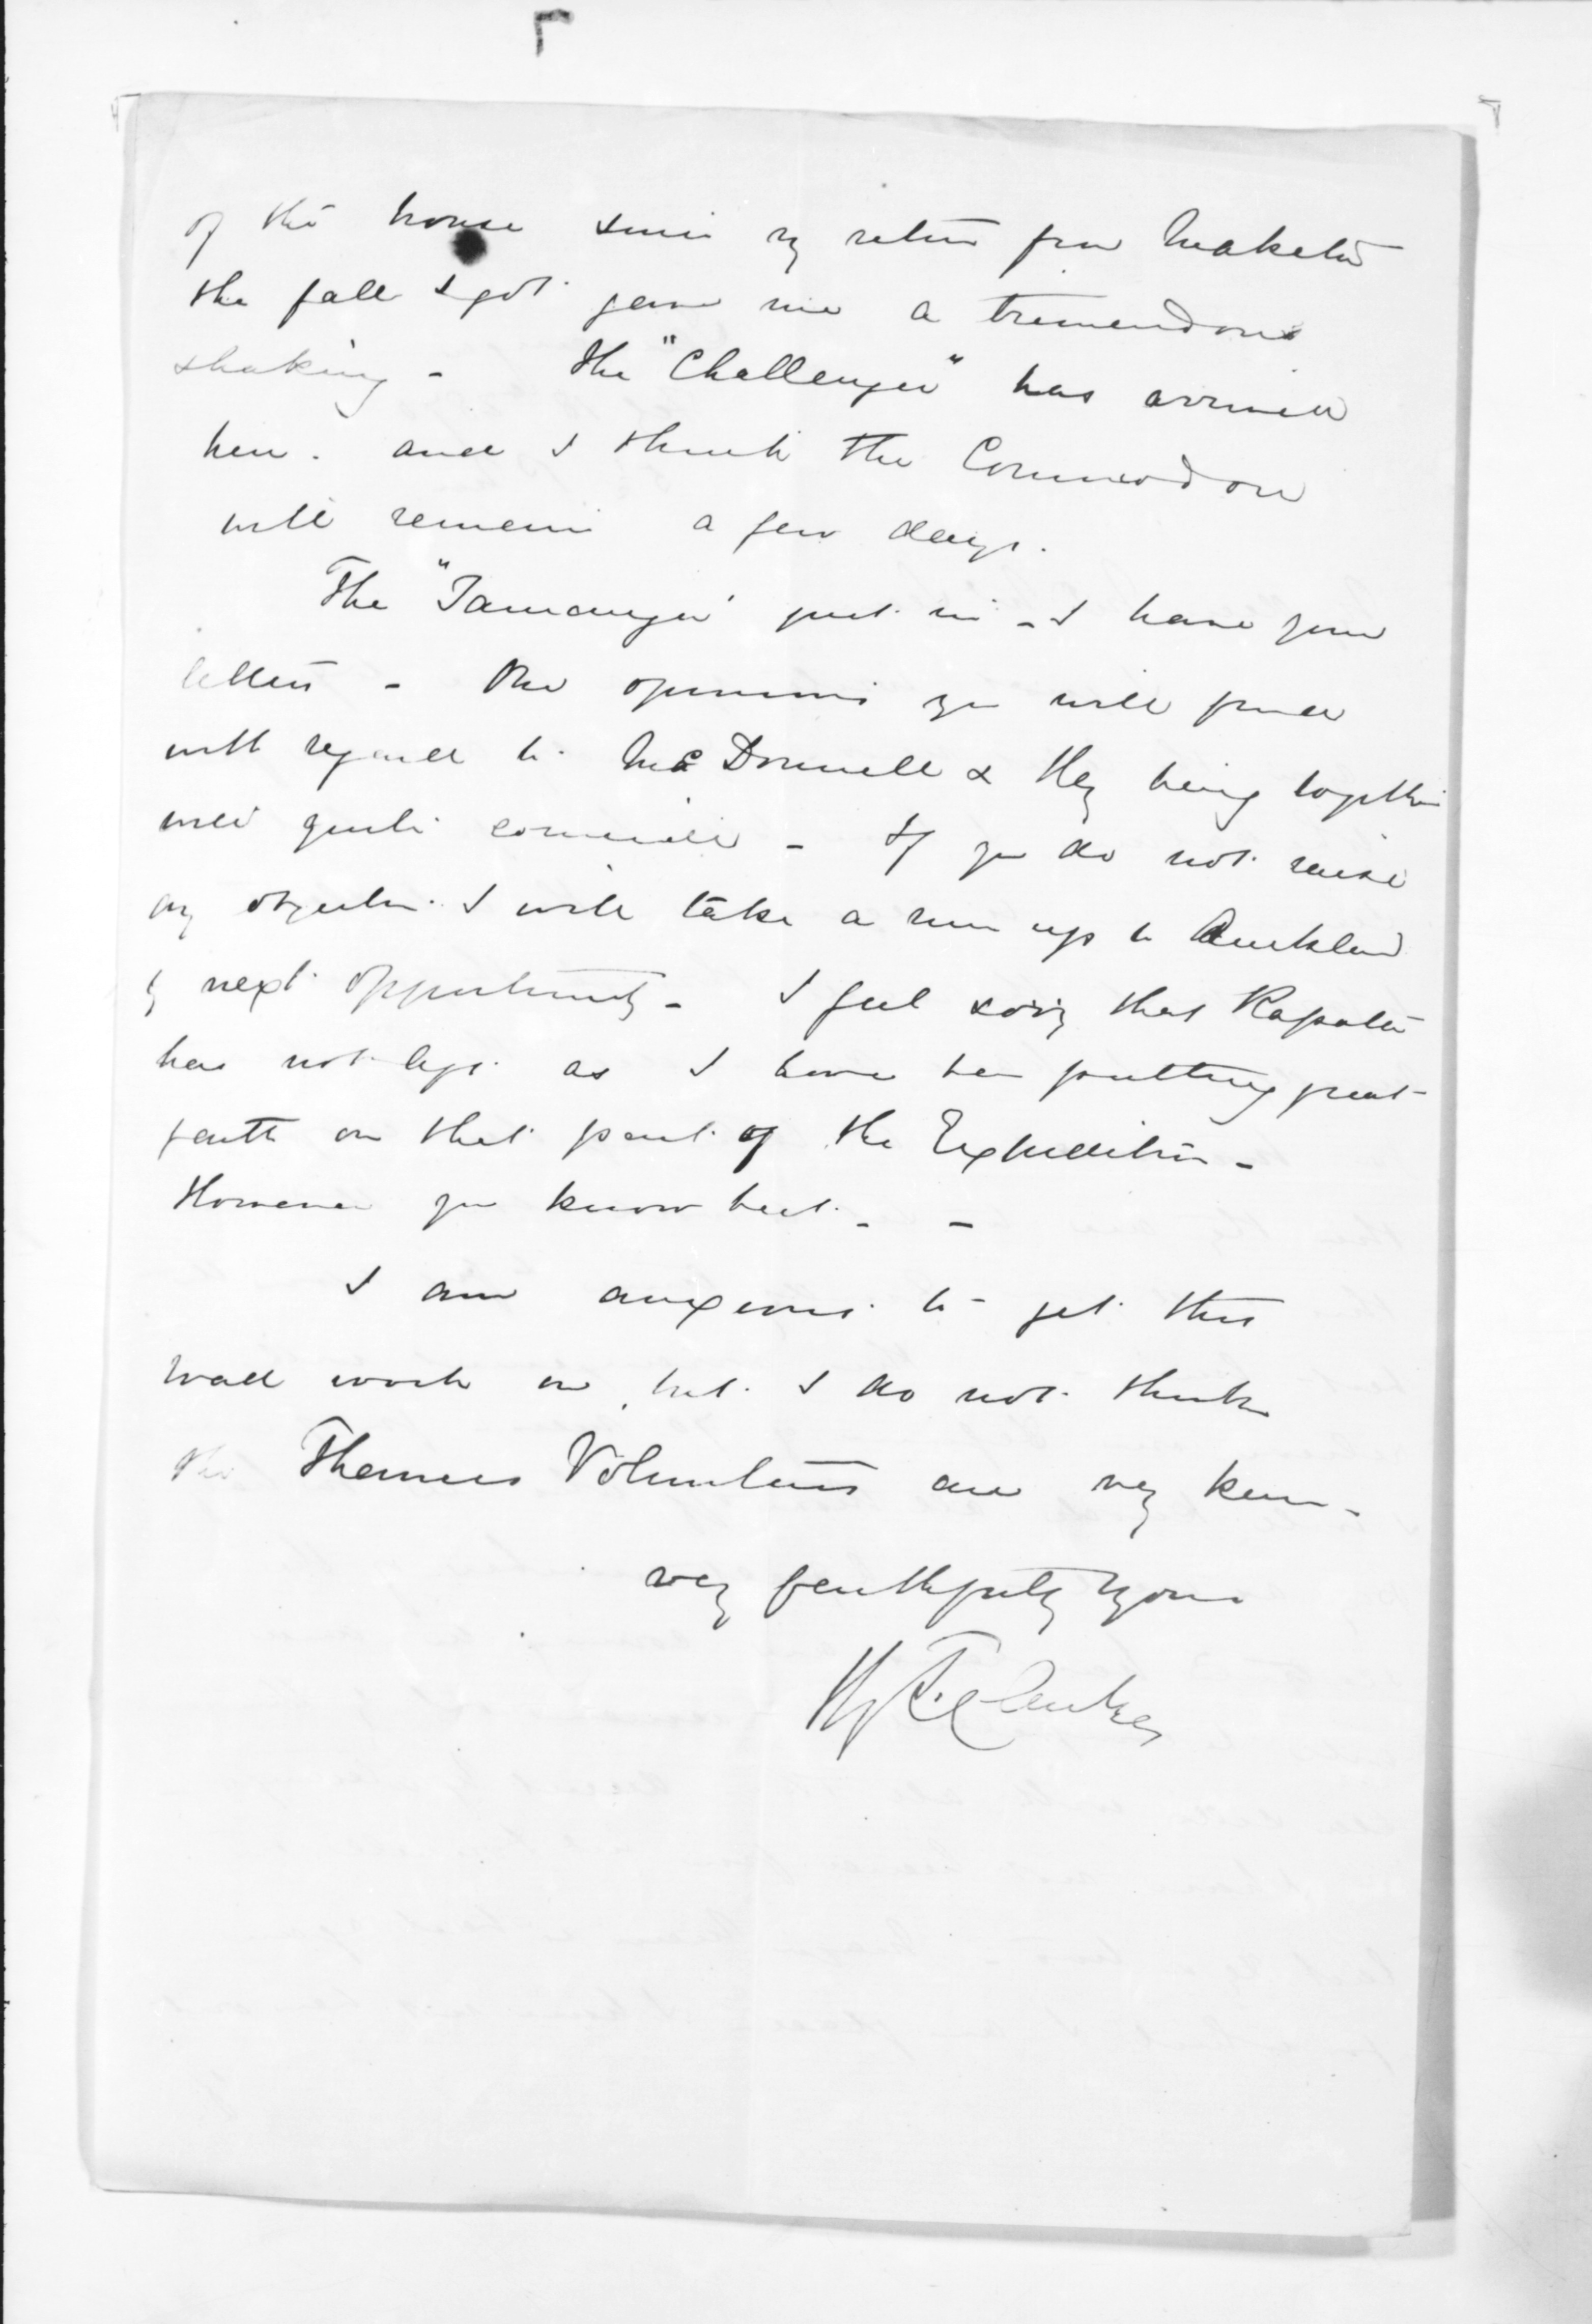 of the house since my return from Maketu
the fall I got gave me a tremendous
shaking - The "Challenger" has arrived
here. and I think the Commodore
will remain a few days.
The "Tauranga" just in - I have your
letters - The opinions you will find
with regard to McDonnell & Hy being together
quite coincide - If you do not raise
any objection I will take a run up to Auckland
by next opportunity - I feel sorry that Ropata
has not left as I have been putting great
faith on that part of the Expedition -
However you know best. -
I am anxious to get this
road work on, but I do not think
the Thames Volunteers are very keen -
very faithfully yours
Hy T. Clarke